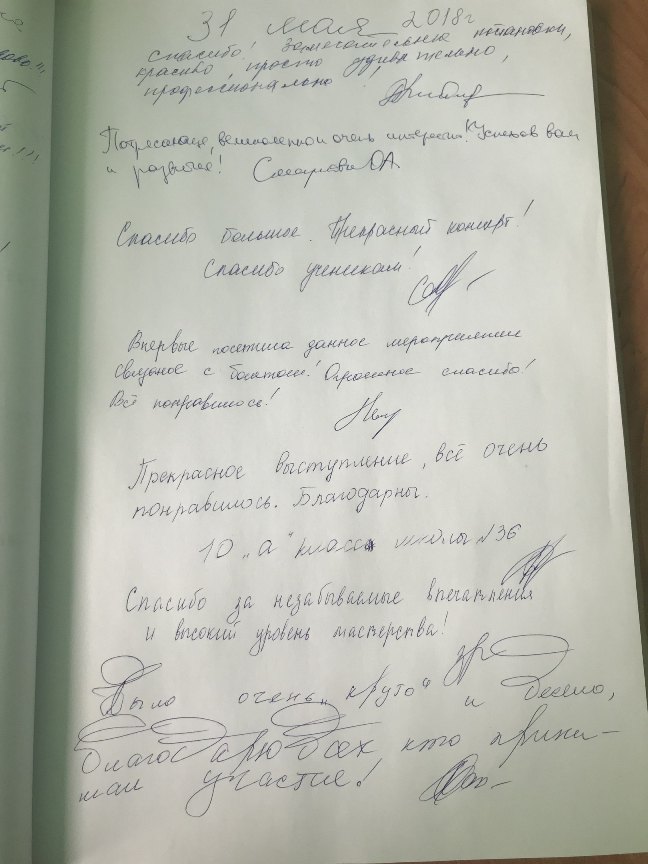 31 мая 2018г
Спасибо! Замечательные постановки,
красиво, просто удивительно,
профессионально!
Потрясающе, великолепно и очень интересно! Успехов вам
и развития!
Спасибо большое. Прекрасный концерт!
Спасибо ученикам!
Впервые посетила данное мероприятие
связаное с балетом! Огромное спасибо!
Всё понравилось!
Прекрасное выступление, всё очень
понравилось. Благодарны.
10 „а" класс школы №36
Спасибо за незабываемые впечатления
и высокий уровень мастерства!
Было очень „круто" и весело,
благодарю всех кто прини-
мал участие!